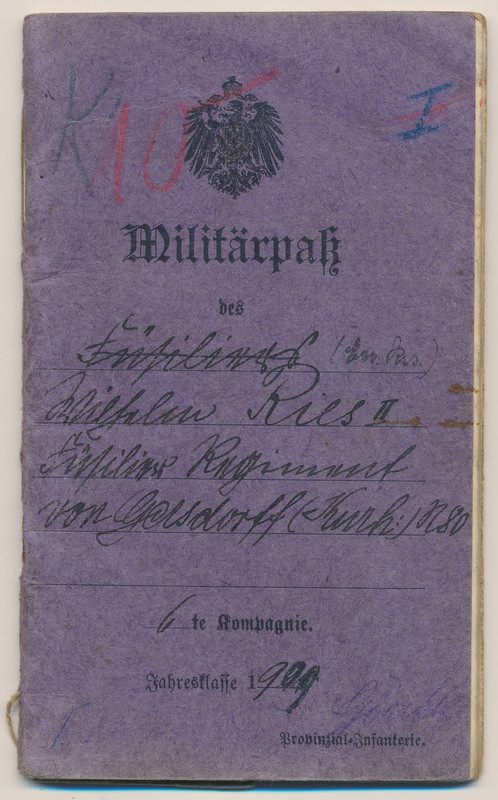 K 10 I
Militärpaß
des
Füsiliers
Wilhelm Ries II
Füsilier Regiment
von Gersdorff (Kurh:) N 80
6 te Kompagnie.
Jahresklasse 1909
Provinzial-Infanterie.